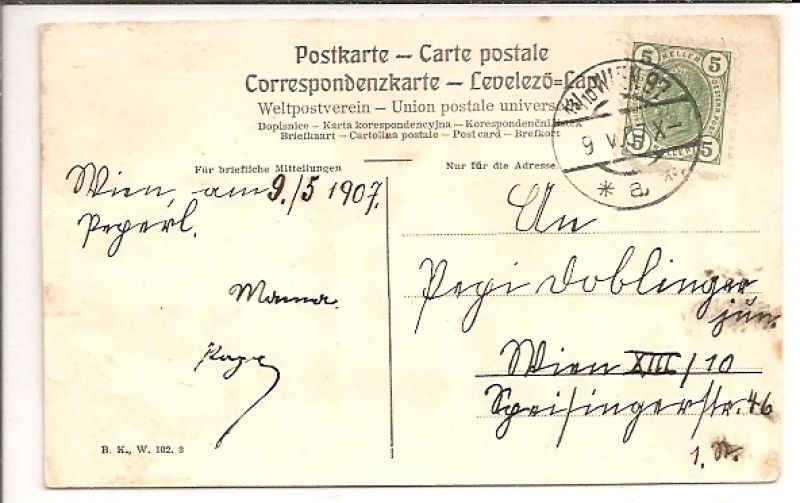 Postkarte – Carte postale
Correspondenzkarte – Levelező=Lap
Weltpostverein – Union postale universelle
Dopisnice – Karta korespondencyjna – Korespondenčni listek
Briefkaart – Cartolina postale – Post card – Brefkort
Für briefliche Mitteilungen
Nur für die Adresse.
5 HELLER 5
5 HELLER 5
WIEN
9 V
* a
Wien, am 9./5 1907.
Pepperl.
Mama.
Papa
An
Pepi Doblinger
jun.
Wien XIII/10
Speisingerstr. 46
1. St.
B. K., W. 102. 3